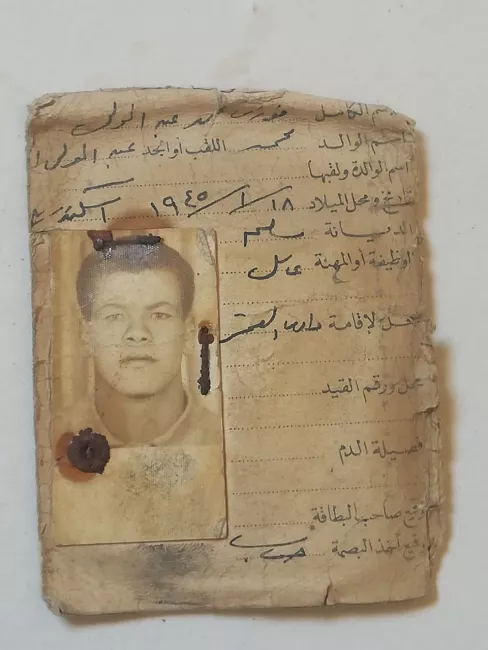 الاسم الكامل عبد المولى
اسم الوالد محمد اللقب أو الجد عبد المولى
اسم الوالدة ولقبها
تاريخ ومحل الميلاد ١٨/١/١٩٤٥ اسكندرية
الديانة مسلم
الوظيفة أو المهنة عامل
محل الإقامة
محل ورقم القيد
فصيلة الدم
توقيع صاحب البطاقة
توقيع آخذ البصمة